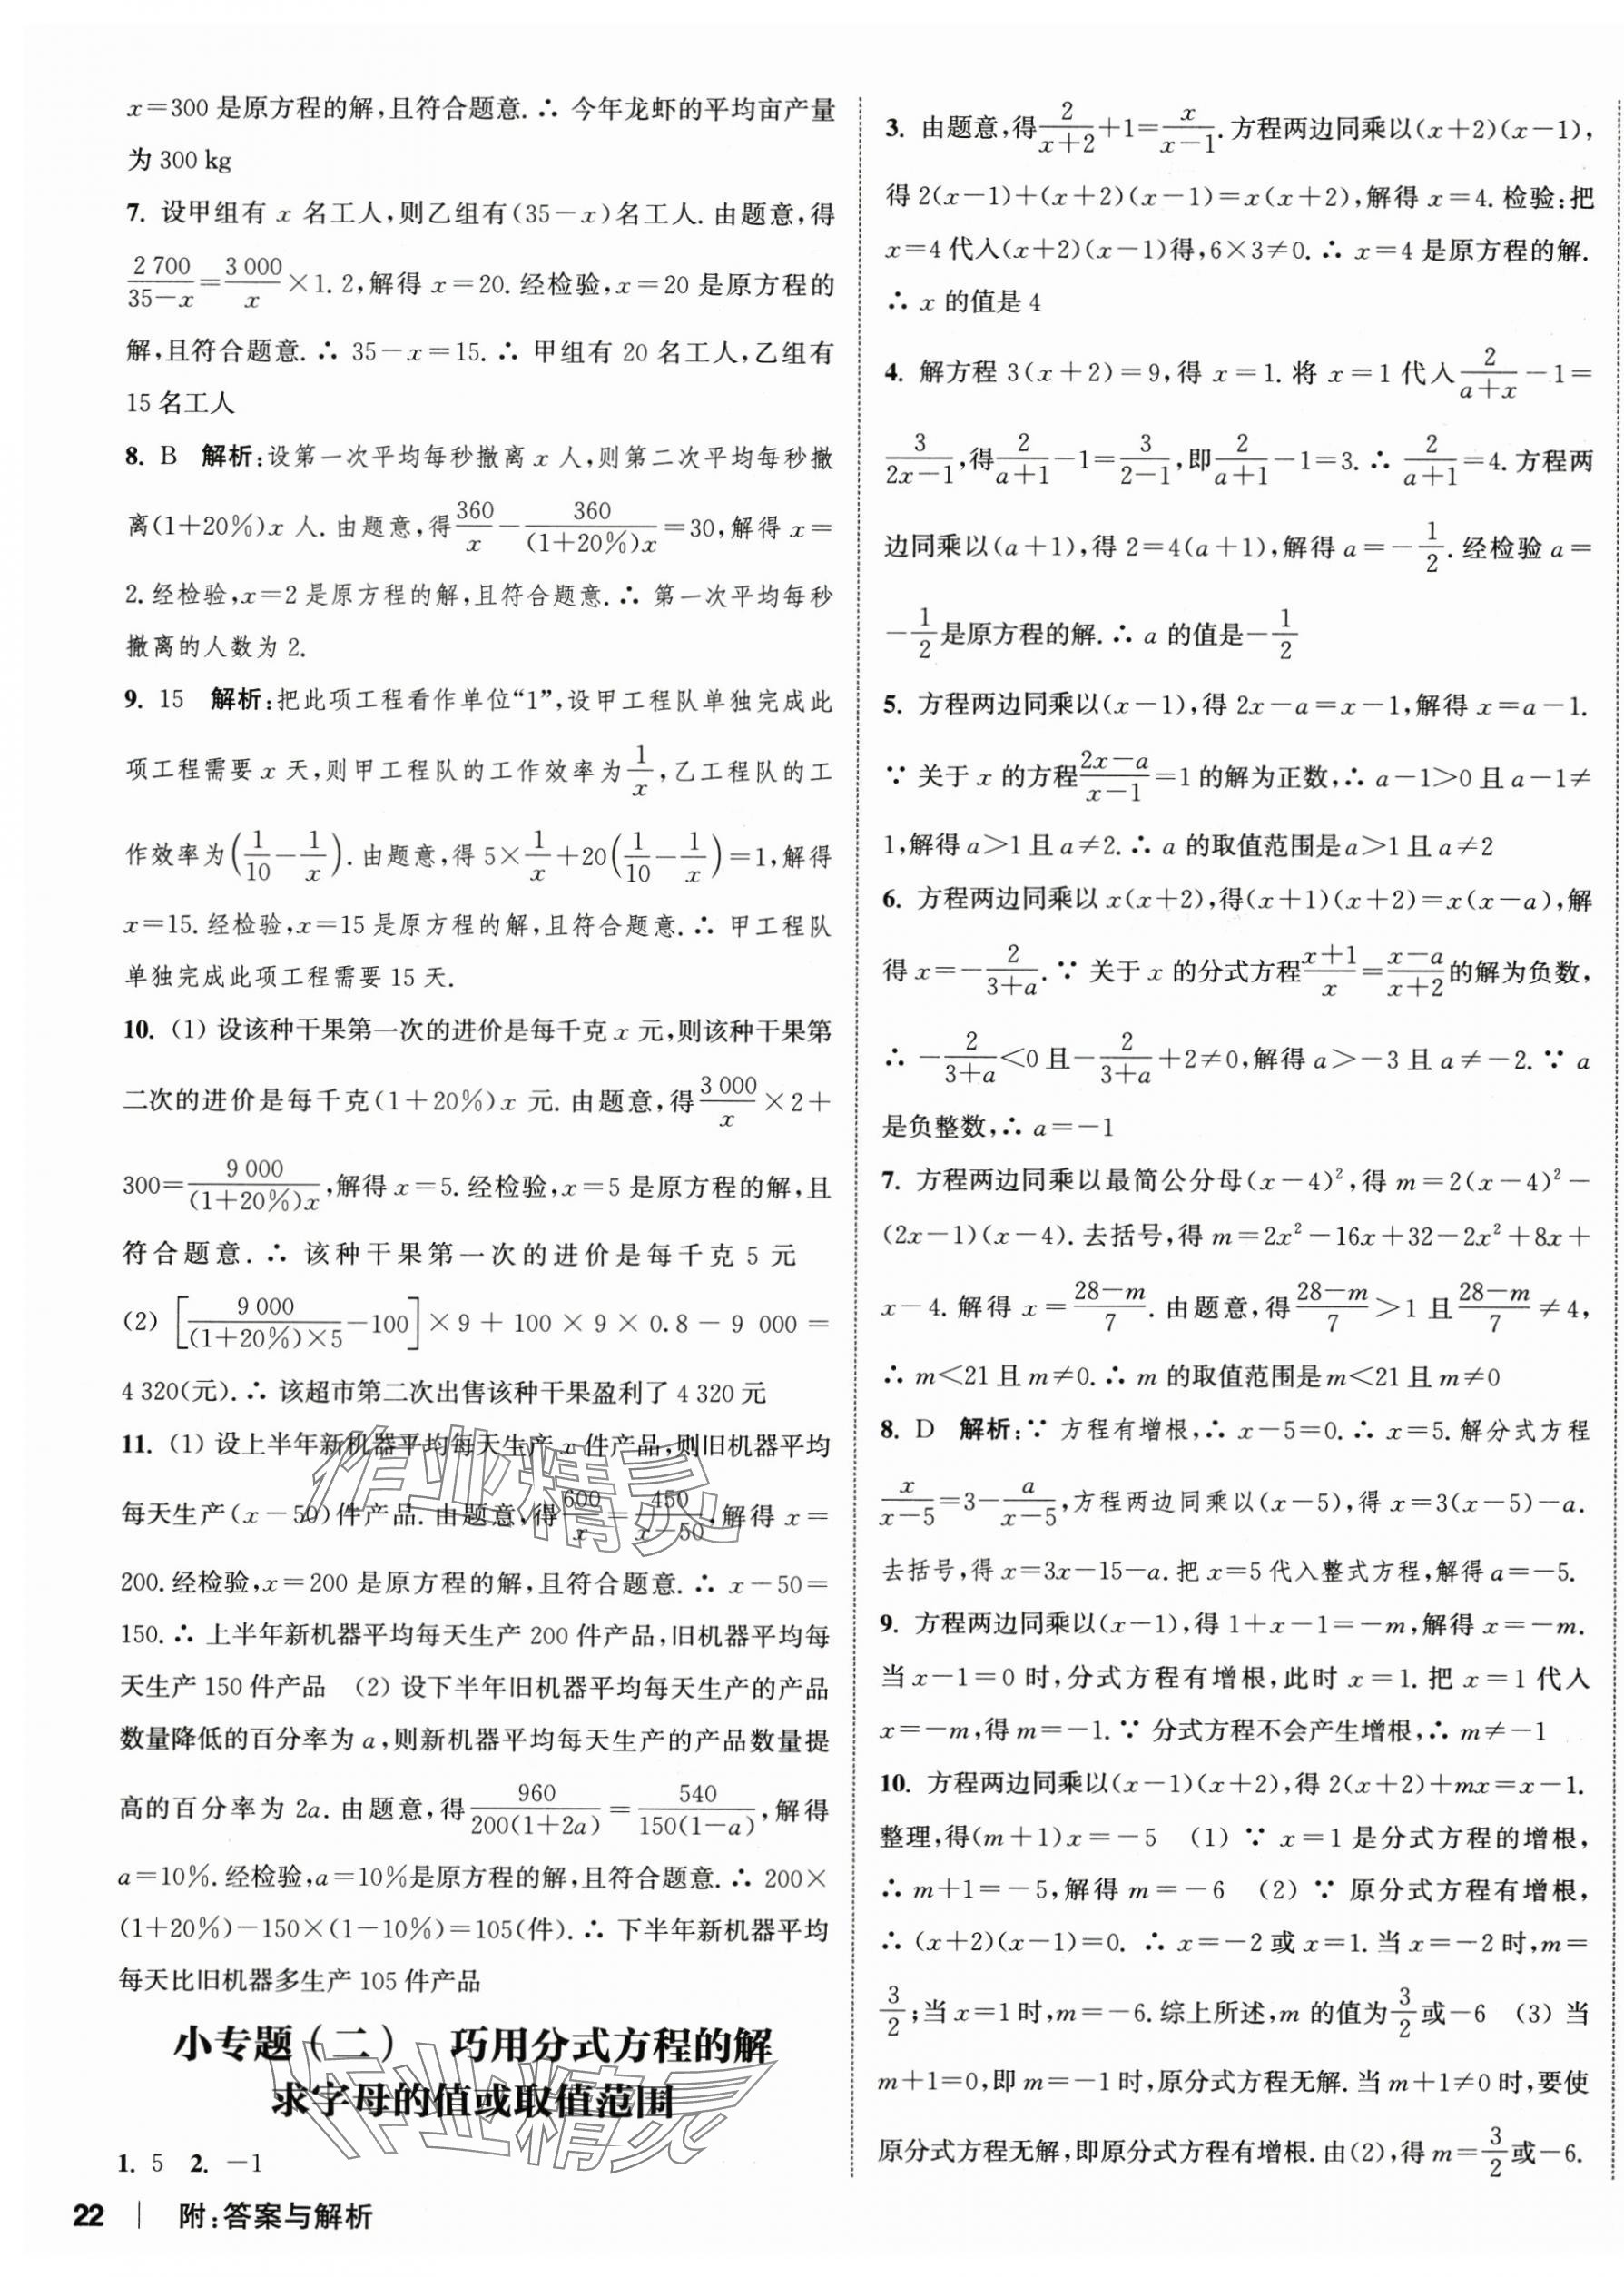 x=300 是原方程的解,且符合题意.∴ 今年龙虾的平均亩产量
为 300 kg
7. 设甲组有 x 名工人,则乙组有(35-x)名工人.由题意,得
\frac{2 700}{35-x}=\frac{3 000}{x}×1.2,解得 x=20.经检验,x=20 是原方程的
解,且符合题意.∴ 35-x=15.∴ 甲组有 20 名工人,乙组有
15 名工人
8. B 解析:设第一次平均每秒撤离 x 人,则第二次平均每秒撤
离(1+20%)x 人.由题意,得\frac{360}{x}-\frac{360}{(1+20%)x}=30,解得 x=
2.经检验,x=2 是原方程的解,且符合题意.∴ 第一次平均每秒
撤离的人数为 2.
9. 15 解析:把此项工程看作单位“1”,设甲工程队单独完成此
项工程需要 x 天,则甲工程队的工作效率为\frac{1}{x},乙工程队的工
作效率为(\frac{1}{10}-\frac{1}{x}).由题意,得 5×\frac{1}{x}+20(\frac{1}{10}-\frac{1}{x})=1,解得
x=15.经检验,x=15 是原方程的解,且符合题意.∴ 甲工程队
单独完成此项工程需要 15 天.
10. (1) 设该种干果第一次的进价是每千克 x 元,则该种干果第
二次的进价是每千克(1+20%)x 元.由题意,得\frac{3 000}{x}×2+
300=\frac{9 000}{(1+20%)x},解得 x=5.经检验,x=5 是原方程的解,且
符合题意.∴ 该种干果第一次的进价是每千克 5 元
(2) [\frac{9 000}{(1+20%)×5}-100]×9+100×9×0.8-9 000=
4 320(元).∴ 该超市第二次出售该种干果盈利了 4 320 元
11. (1) 设上半年新机器平均每天生产 x 件产品,则旧机器平均
每天生产(x-50)件产品.由题意,得\frac{600}{x}=\frac{450}{x-50},解得 x=
200.经检验,x=200 是原方程的解,且符合题意.∴ x-50=
150.∴ 上半年新机器平均每天生产 200 件产品,旧机器平均每
天生产 150 件产品 (2) 设下半年旧机器平均每天生产的产品
数量降低的百分率为 a,则新机器平均每天生产的产品数量提
高的百分率为 2a.由题意,得\frac{960}{200(1+2a)}=\frac{540}{150(1-a)},解得
a=10%.经检验,a=10%是原方程的解,且符合题意.∴ 200×
(1+20%)-150×(1-10%)=105(件).∴ 下半年新机器平均
每天比旧机器多生产 105 件产品
小专题(二) 巧用分式方程的解
求字母的值或取值范围
1. 5 2. -1
3. 由题意,得\frac{2}{x+2}+1=\frac{x}{x-1}.方程两边同乘以(x+2)(x-1),
得 2(x-1)+(x+2)(x-1)=x(x+2),解得 x=4.检验:把
x=4 代入(x+2)(x-1)得,6×3≠0.∴ x=4 是原方程的解.
∴ x 的值是 4
4. 解方程 3(x+2)=9,得 x=1.将 x=1 代入\frac{2}{a+x}-1=
\frac{3}{2x-1},得\frac{2}{a+1}-1=\frac{3}{2-1},即\frac{2}{a+1}-1=3.∴ \frac{2}{a+1}=4.方程两
边同乘以(a+1),得 2=4(a+1),解得 a=-\frac{1}{2}.经检验 a=
-\frac{1}{2}是原方程的解.∴ a 的值是-\frac{1}{2}
5. 方程两边同乘以(x-1),得 2x-a=x-1,解得 x=a-1.
∵ 关于 x 的方程\frac{2x-a}{x-1}=1 的解为正数,∴ a-1>0 且 a-1≠
1,解得 a>1 且 a≠2.∴ a 的取值范围是 a>1 且 a≠2
6. 方程两边同乘以 x(x+2),得(x+1)(x+2)=x(x-a),解
得 x=-\frac{2}{3+a}.∵ 关于 x 的分式方程\frac{x+1}{x}=\frac{x-a}{x+2}的解为负数,
∴ -\frac{2}{3+a}<0 且-\frac{2}{3+a}+2≠0,解得 a>-3 且 a≠-2.∵ a
是负整数,∴ a=-1
7. 方程两边同乘以最简公分母(x-4)²,得 m=2(x-4)²-
(2x-1)(x-4).去括号,得 m=2x²-16x+32-2x²+8x+
x-4.解得 x=\frac{28-m}{7}.由题意,得\frac{28-m}{7}>1 且\frac{28-m}{7}≠4,
∴ m<21 且 m≠0.∴ m 的取值范围是 m<21 且 m≠0
8. D 解析:∵ 方程有增根,∴ x-5=0.∴ x=5.解分式方程
\frac{x}{x-5}=3-\frac{a}{x-5},方程两边同乘以(x-5),得 x=3(x-5)-a.
去括号,得 x=3x-15-a.把 x=5 代入整式方程,解得 a=-5.
9. 方程两边同乘以(x-1),得 1+x-1=-m,解得 x=-m.
当 x-1=0 时,分式方程有增根,此时 x=1.把 x=1 代入
x=-m,得 m=-1.∵ 分式方程不会产生增根,∴ m≠-1
10. 方程两边同乘以(x-1)(x+2),得 2(x+2)+mx=x-1.
整理,得(m+1)x=-5 (1) ∵ x=1 是分式方程的增根,
∴ m+1=-5,解得 m=-6 (2) ∵ 原分式方程有增根,
∴ (x+2)(x-1)=0. ∴ x=-2 或 x=1.当 x=-2 时,m=
\frac{3}{2};当 x=1 时,m=-6.综上所述,m 的值为\frac{3}{2}或-6 (3) 当
m+1=0,即 m=-1 时,原分式方程无解.当 m+1≠0 时,要使
原分式方程无解,即原分式方程有增根.由(2),得 m=\frac{3}{2}或-6.
22 | 附:答案与解析
作业精灵
作业精灵